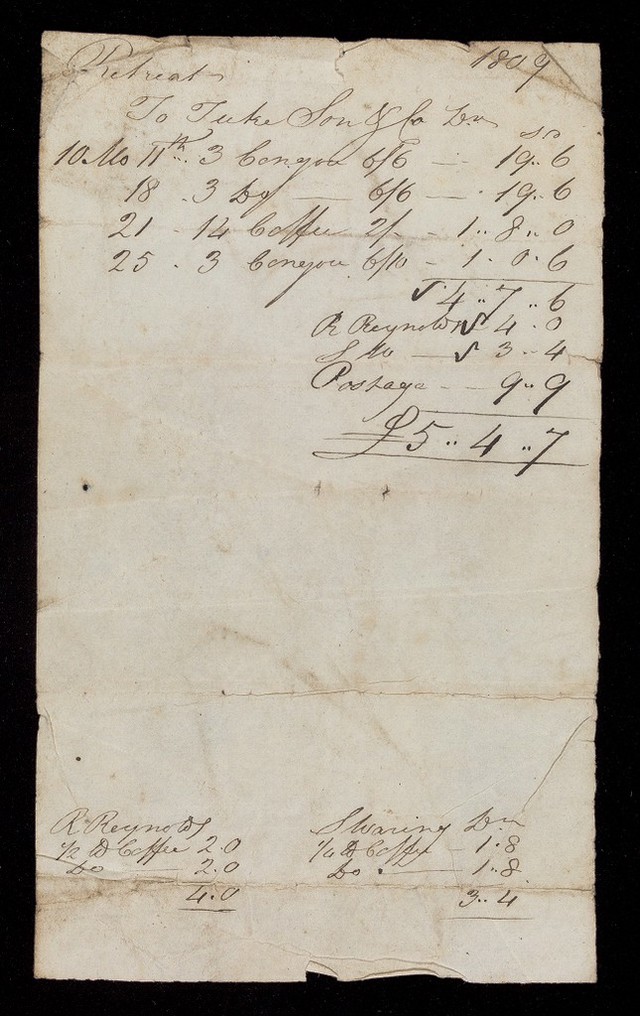 Retreat 1809
To Tuke Son & Co Dr
s D
10 Mo 11th .. 3 Congou 6/6 — 19 .. 6
18 . 3 Do — 6/6 — . 19 .. 6
21 - 14 Coffee 2/- - 1 .. 8 .. 0
25 . 3 Congou . 6/10 - 1 . 0 . 6
√ 4 .. 7 .. 6
R Reynolds √ 4 . 0
S W — √ 3 .. 4
Postage - — 9 .. 9
£5 .. 4 .. 7
R Reynolds
1/2 lb Coffee 2.0
Do — 2.0
4.0
S Waring Dr
1/4 lb Coffee - 1 .. 8
Do . — 1 .. 8
3 .. 4